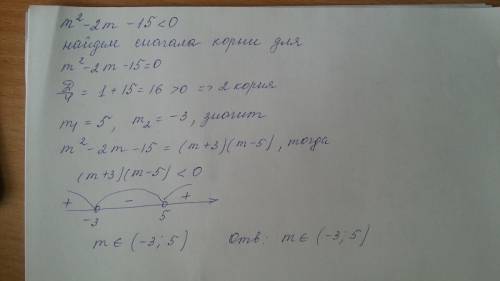 m² - 2m - 15 < 0
найдем сначала корни для
m² - 2m - 15 = 0
D/4 = 1 + 15 = 16 > 0 => 2 корня
m₁ = 5, m₂ = -3, значит
m² - 2m - 15 = (m+3)(m-5), тогда
(m+3)(m-5) < 0
+ - +
-3 5
m ∈ (-3; 5) Отв: m ∈ (-3; 5)